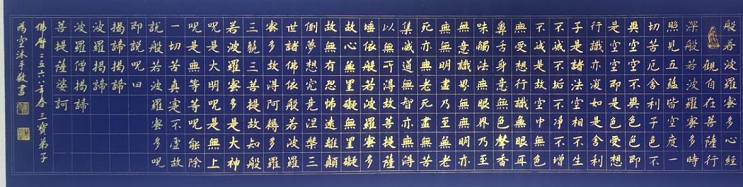 般若波羅蜜多心經
觀自在菩薩行
深般若波羅蜜多時
照見五蘊皆空度一
切苦厄舍利子色不
異空空不異色色即
是空空即是色受想
行識亦復如是舍利
子是諸法空相不生
不滅不垢不淨不增
不減是故空中無色
無受想行識無眼耳
鼻舌身意無色聲香
味觸法無眼界乃至
無意識界無無明亦
無無明盡乃至無老
死亦無老死盡無苦
集滅道無智亦無得
以無所得故菩提薩
埵依般若波羅蜜多
故心無罣礙無罣礙
故無有恐怖遠離顛
倒夢想究竟涅槃三
世諸佛依般若波羅
蜜多故得阿耨多羅
三藐三菩提故知般
若波羅蜜多是大神
呪是大明呪是無上
呪是無等等呪能除
一切苦真實不虛故
說般若波羅蜜多呪
即說呪曰
揭諦揭諦
波羅揭諦
波羅僧揭諦
菩提薩婆訶
佛曆二五六八年春 三寶弟子
空沐手敬書